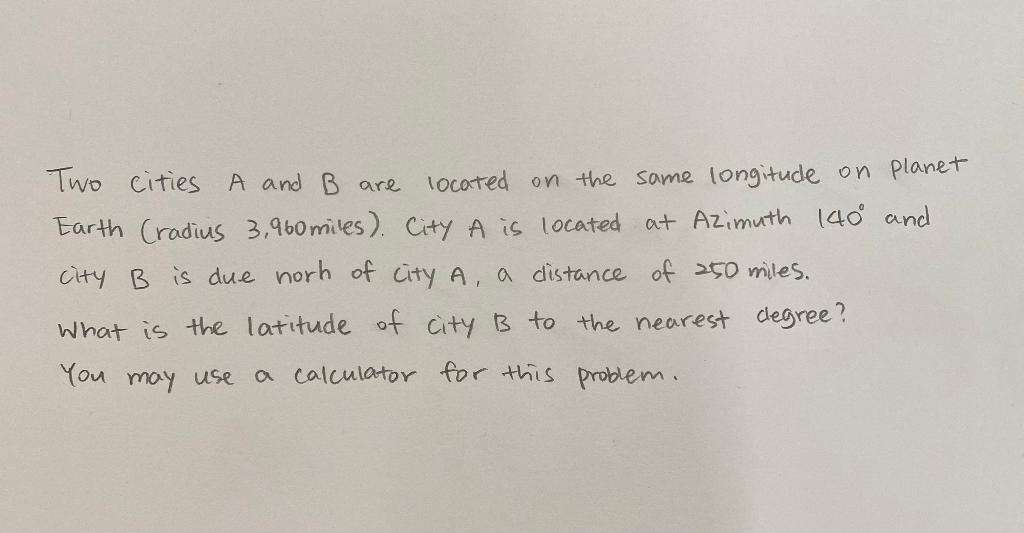 Two cities A and B are located on the same longitude on planet
Earth (radius 3,960miles). City A is located at Azimuth 140° and
city B is due norh of city A, a distance of 250 miles.
What is the latitude of city B to the nearest degree?
You may use a calculator for this problem.